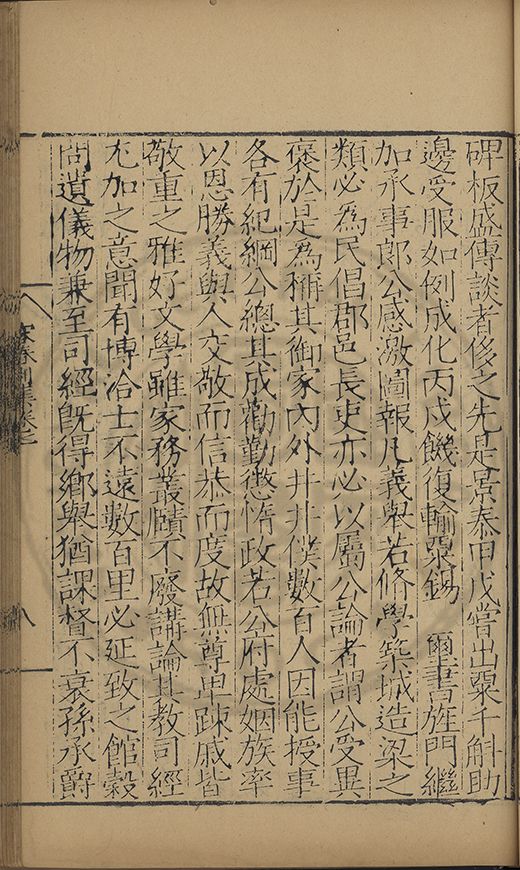 碑板盛傳談者侈之先是景泰甲戌嘗出粟千斛助
邊受服如例成化丙戌饑復輸粟錫　璽書旌門繼
加承事郎公感激圖報凡義舉若修學築城造梁之
類必為民倡郡邑長吏亦必以屬公論者謂公受異
褒於是為稱其御家內外井井僕數百人因能授事
各有紀綱公總其成勸勤懲惰政若公府處姻族率
以恩勝義與人交敬而信恭而度故無尊卑踈戚皆
敬重之雅好文學雖家務叢賾不廢講論其教司經
尤加之意聞有博洽士不遠數百里必延致之館穀
問遺儀物兼至司經旣得鄉舉猶課督不衰孫承爵
家
八